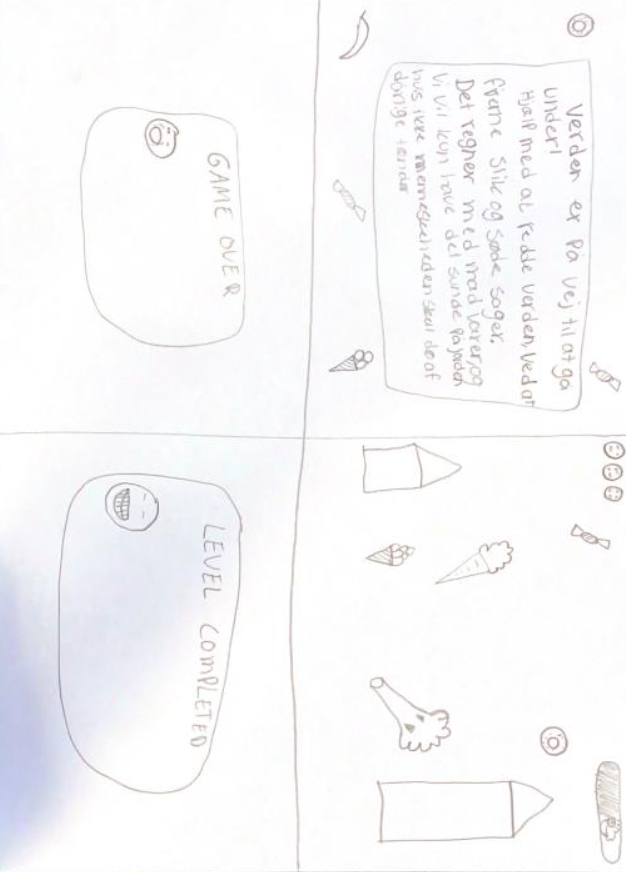 Verden er på vej til at gå
under!
Hjælp med at redde verden, ved at
fjerne slik og søde sager.
Det regner med madvarer, og
vi vil kun have det sunde på jorden
hvis ikke menneskeheden skal dø af
dårlige tænder
GAME OVER
LEVEL COMPLETED